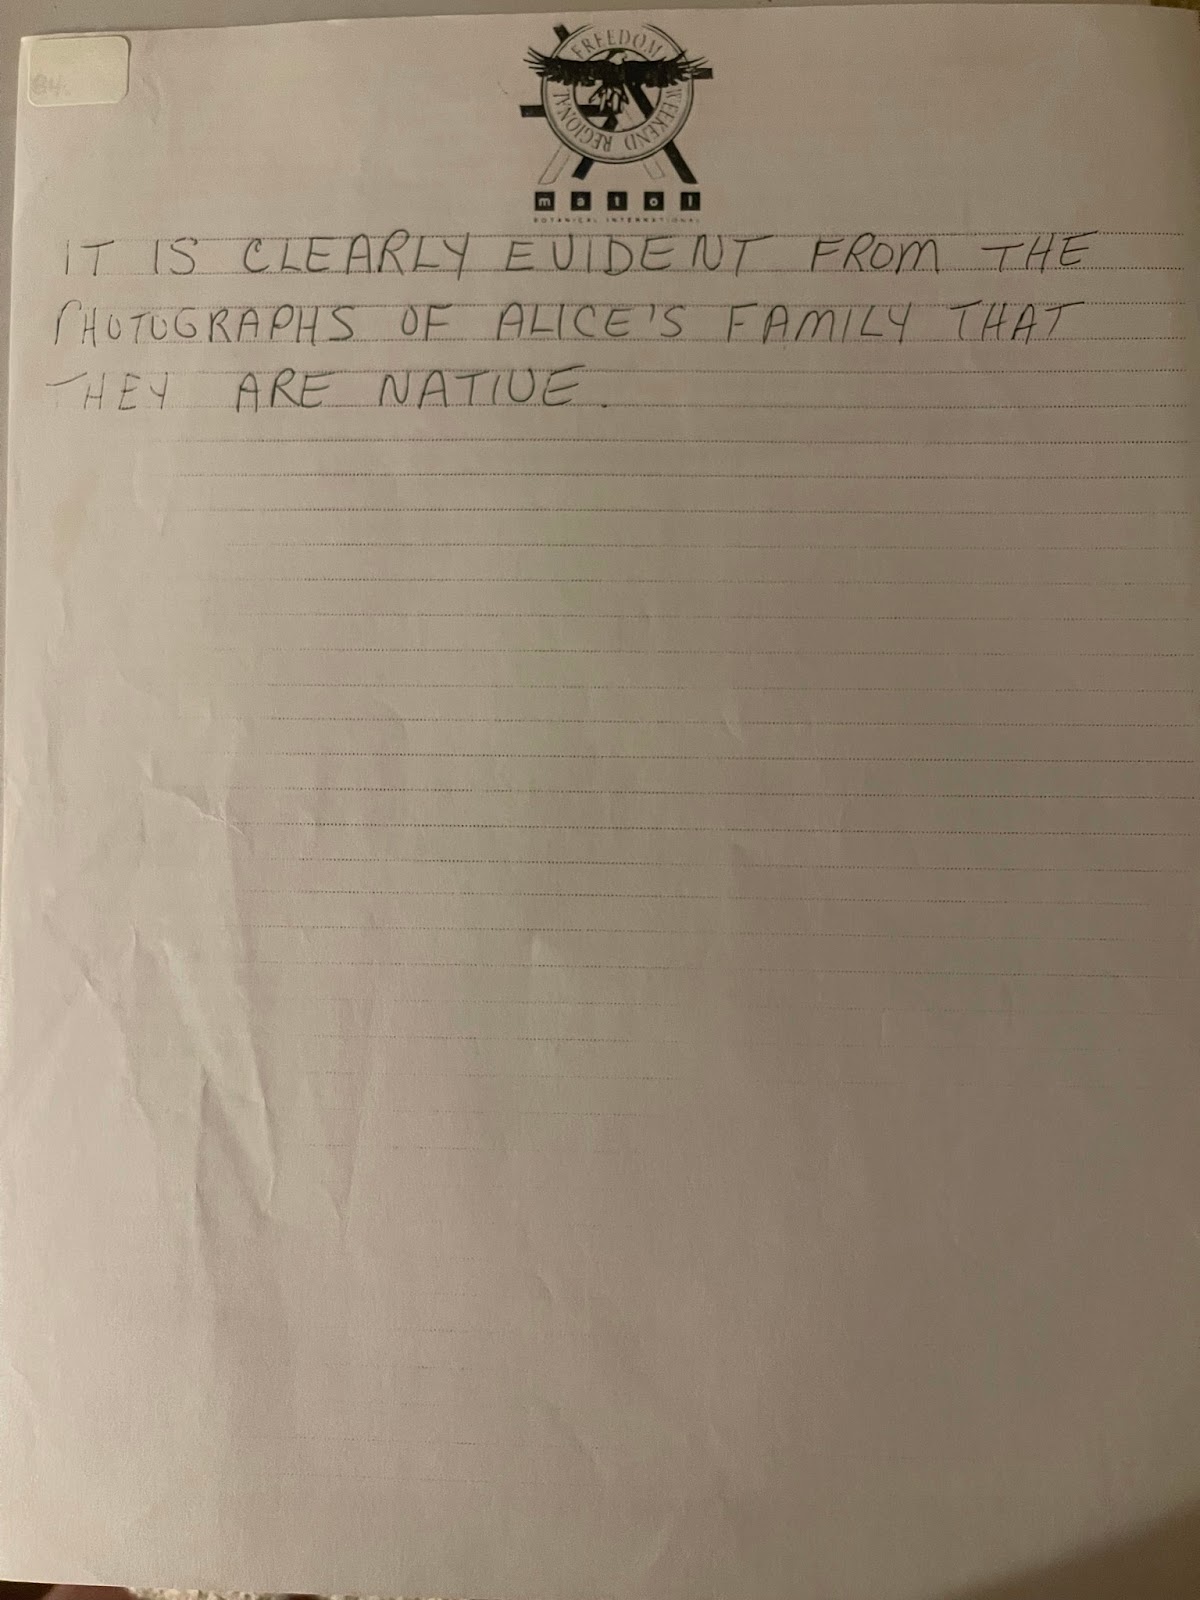 84.
FREEDOM
WEEKEND REGIONAL
matol
BOTANICAL INTERNATIONAL
IT IS CLEARLY EVIDENT FROM THE
PHOTOGRAPHS OF ALICE'S FAMILY THAT
THEY ARE NATIVE.